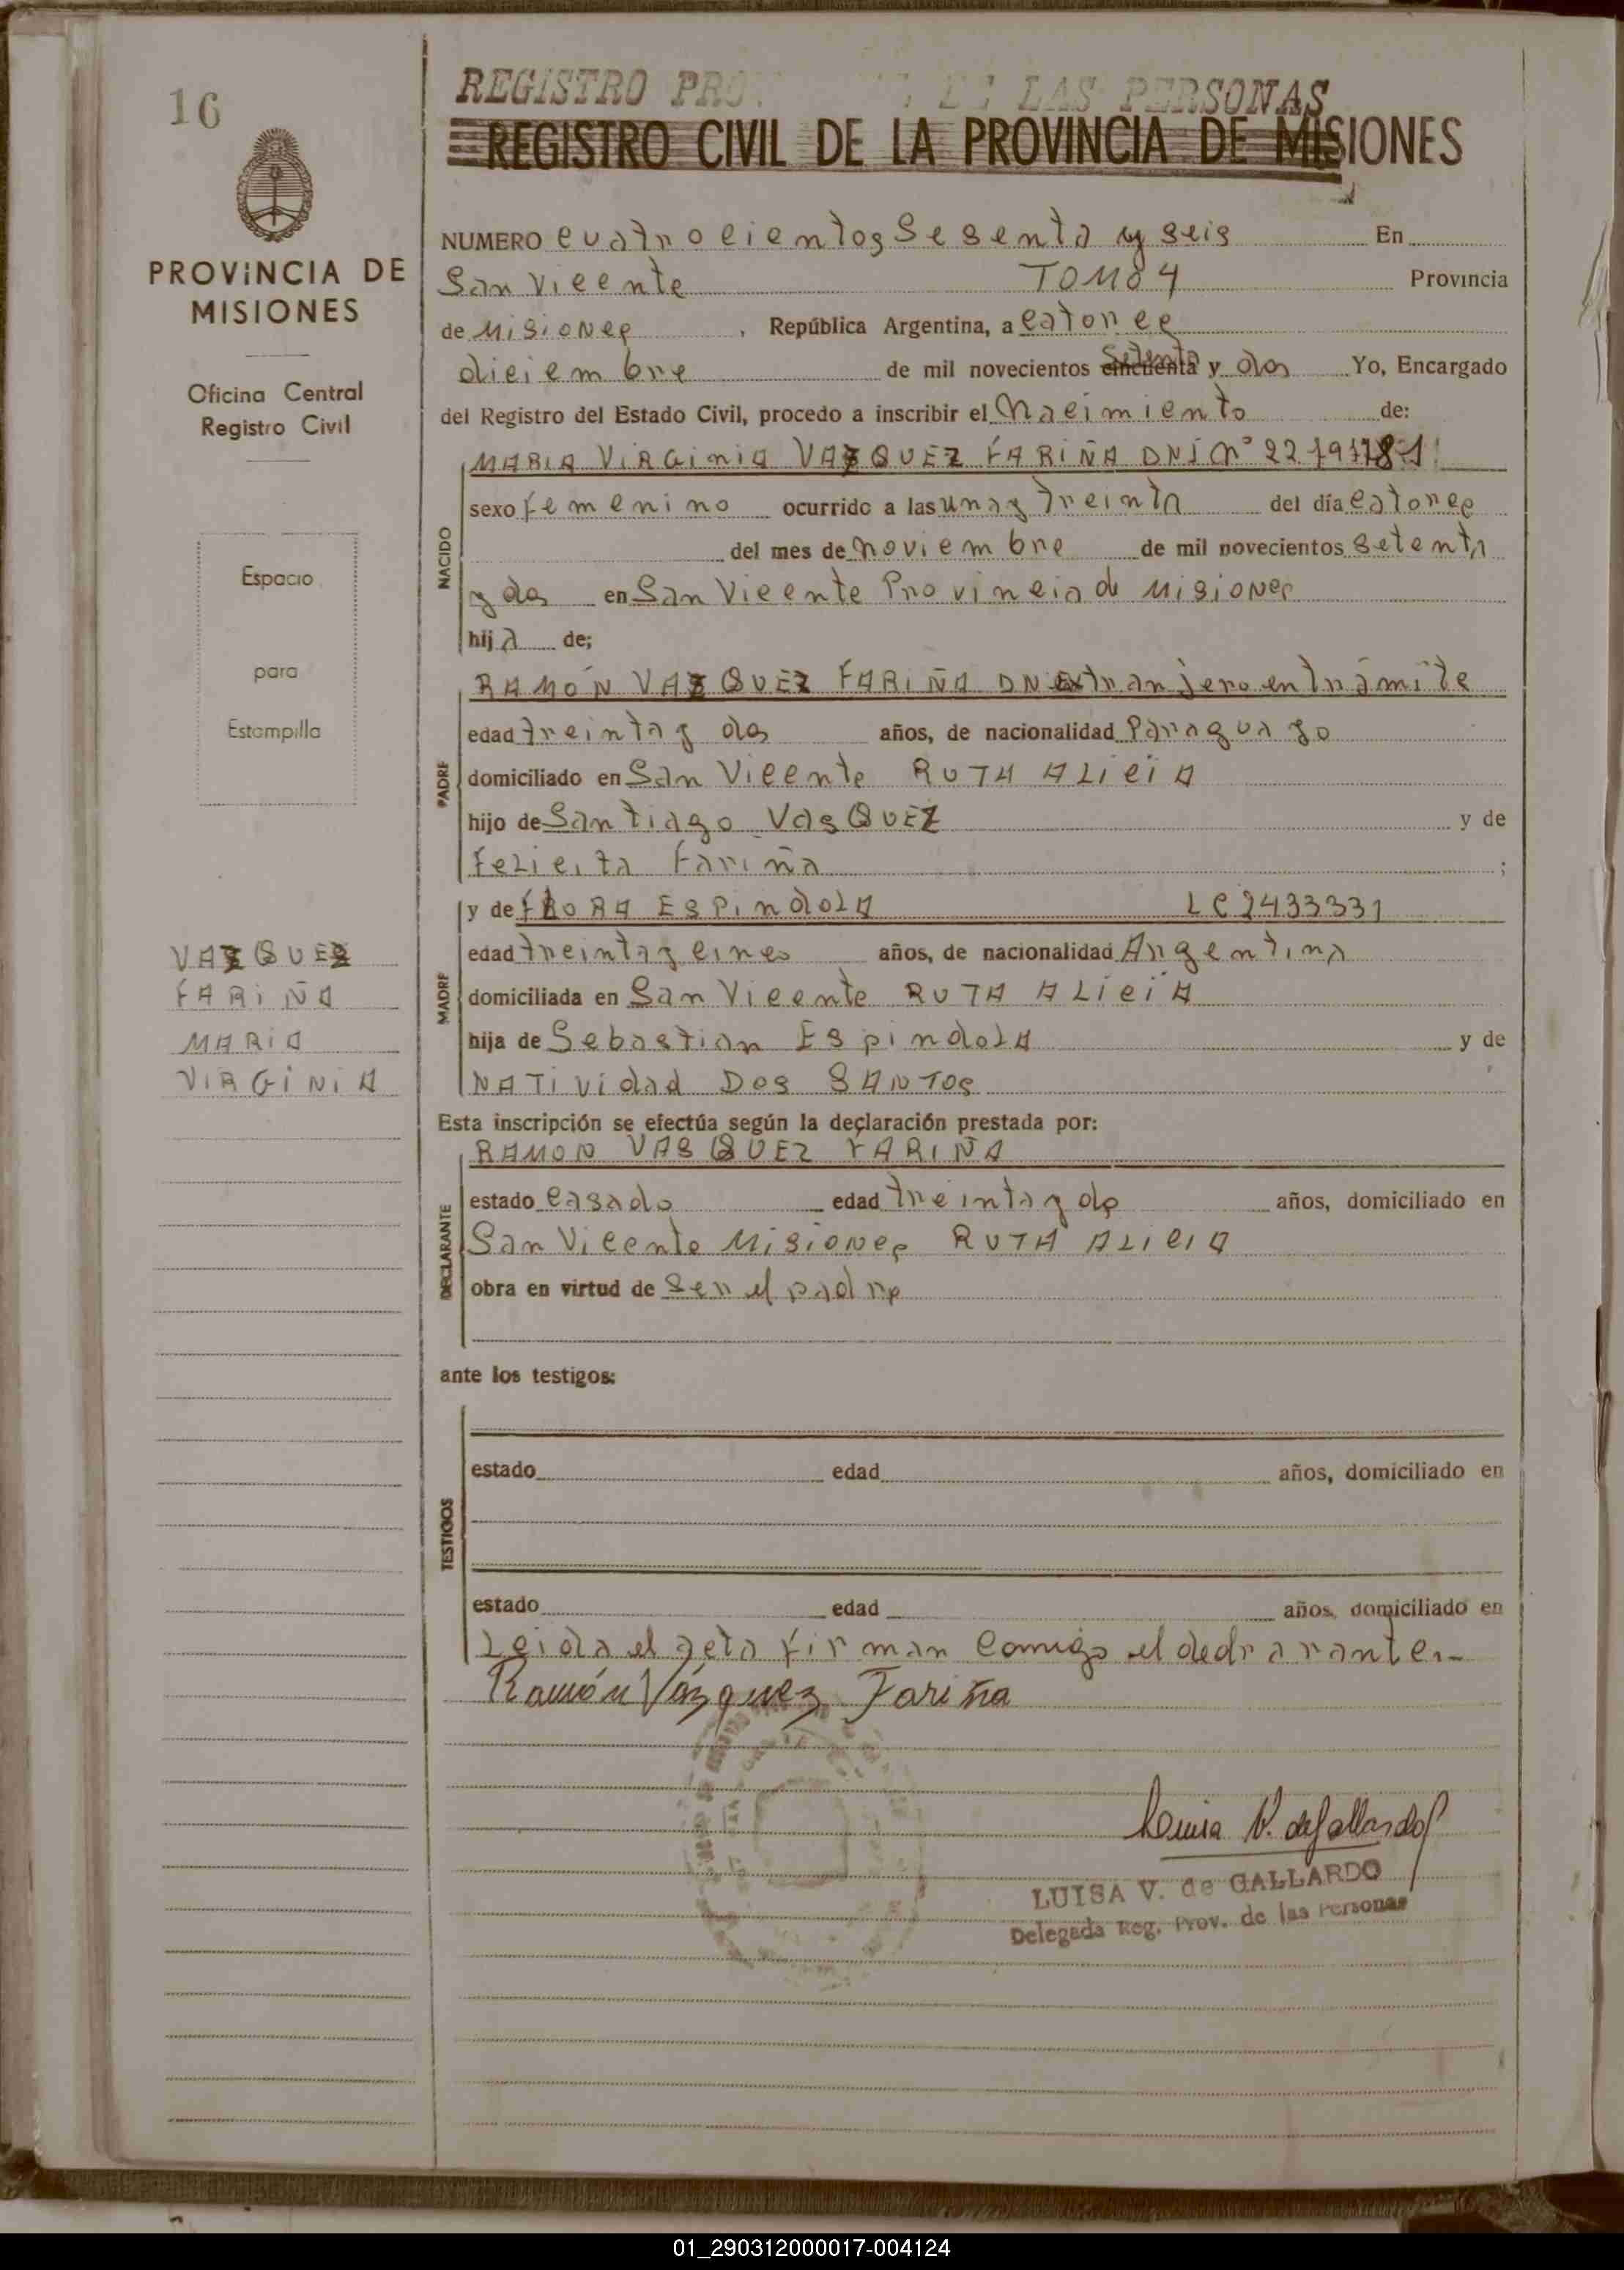 16
PROVINCIA DE
MISIONES
Oficina Central
Registro Civil
Espacio
para
Estampilla
VAZQUEZ
FARIÑA
MARIA
VIRGINIA
REGISTRO PRO DE LAS PERSONAS
REGISTRO CIVIL DE LA PROVINCIA DE MISIONES
NUMERO cuatrocientos Sesenta y seis En
San Vicente TOMO 4 Provincia
de Misiones, República Argentina, a catorce
diciembre de mil novecientos cincuenta Setenta y dos Yo, Encargado
del Registro del Estado Civil, procedo a inscribir el nacimiento de:
MARIA VIRGINIA VAZQUEZ FARIÑA DNI Nº
NACIDO
sexo femenino ocurrido a las una y treinta del día catorce
del mes de noviembre de mil novecientos setenta
y dos en San Vicente Provincia de Misiones
hija de;
PADRE
RAMÓN VAZQUEZ FARIÑA DN Extranjero en trámite
edad treinta y dos años, de nacionalidad Paraguayo
domiciliado en San Vicente RUTA ALICIA
hijo de Santiago VasQUEZ y de
Felicita Fariña ;
MADRE
y de FLORA ESPINDOLA LC 2433331
edad treinta y cinco años, de nacionalidad Argentina
domiciliada en San Vicente RUTA ALICIA
hija de Sebastian Espindola y de
NATIVidad Dos SANTOS
Esta inscripción se efectúa según la declaración prestada por:
DECLARANTE
RAMON VASQUEZ FARIÑA
estado casado edad treinta y dos años, domiciliado en
San Vicente Misiones RUTA ALICIA
obra en virtud de ser el padre
ante los testigos:
TESTIGOS
estado edad años, domiciliado en
estado edad años, domiciliado en
Leida el acta firman comigo el declarante.-
Ramón Vázquez Fariña
Luisa V. de Gallardo
LUISA V. de GALLARDO
Delegada Reg. Prov. de las Personas
01_290312000017-004124